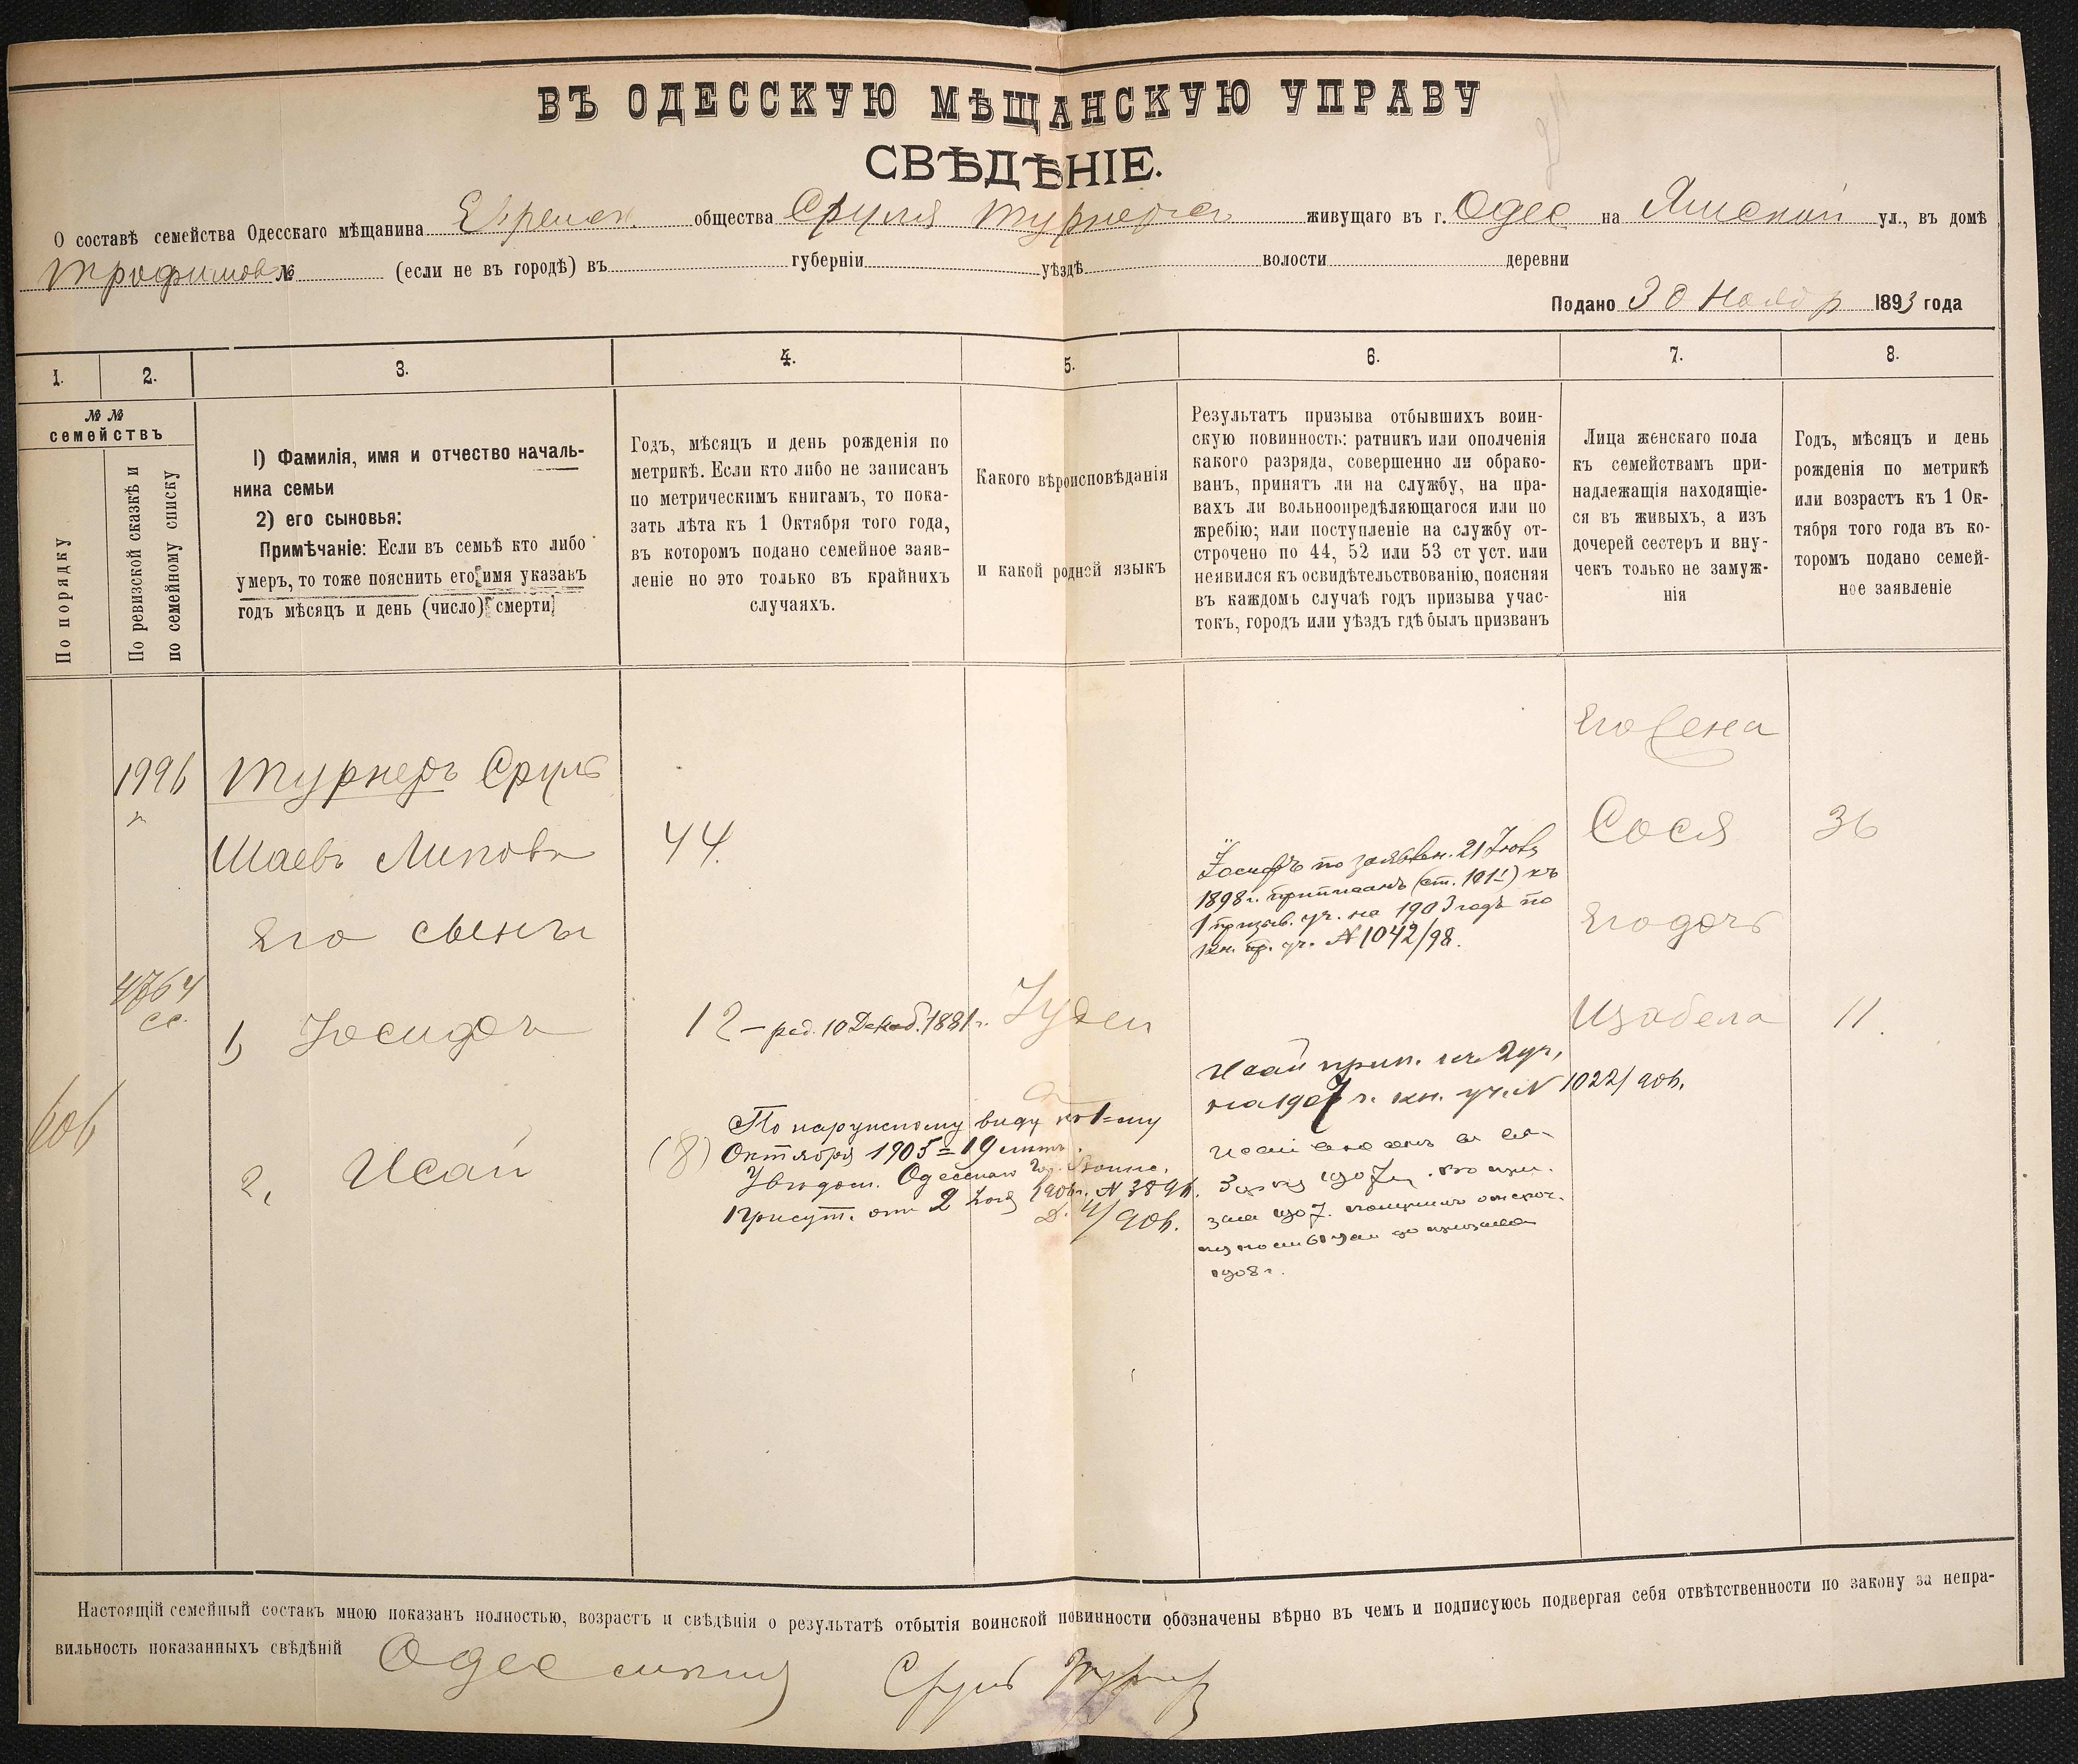 ВЪ ОДЕССКУЮ МѢЩАНСКУЮ УПРАВУ
СВѢДѢНІЕ.
О составѣ семейства Одесскаго мѣщанина Еврейск. общества Сруля Турнера живущаго въ г. Одес на Ямской ул., въ домѣ
Трофимова № (если не въ городѣ) въ губерніи уѣздѣ волости деревни
Подано 30 Ноябр 1893 года
1. 2. 3. 4. 5. 6. 7. 8.
№ №
семействъ
По порядку
По ревизской сказкѣ и
по семейному списку
1) Фамилія, имя и отчество началь-
ника семьи
2) его сыновья:
Примѣчаніе: Если въ семьѣ кто либо
умеръ, то тоже пояснить его имя указавъ
годъ мѣсяцъ и день (число) смерти
Годъ, мѣсяцъ и день рожденія по
метрикѣ. Если кто либо не записанъ
по метрическимъ книгамъ, то пока-
зать лѣта къ 1 Октября того года,
въ которомъ подано семейное заяв-
леніе но это только въ крайнихъ
случаяхъ.
Какого вѣроисповѣданія
и какой родной языкъ
Результатъ призыва отбывшихъ воин-
скую повинность: ратникъ или ополченія
какого разряда, совершенно ли обрако-
ванъ, принятъ ли на службу, на пра-
вахъ ли вольноопредѣляющагося или по
жребію; или поступленіе на службу от-
строчено по 44, 52 или 53 ст уст. или
неявился къ освидѣтельствованію, поясняя
въ каждомъ случаѣ годъ призыва учас-
токъ, городъ или уѣздъ гдѣ былъ призванъ
Лица женскаго пола
къ семействамъ при-
надлежащія находящіе-
ся въ живыхъ, а изъ
дочерей сестеръ и вну-
чекъ только не замуж-
нія
Годъ, мѣсяцъ и день
рожденія по метрикѣ
или возрастъ къ 1 Ок-
тября того года въ ко-
торомъ подано семей-
ное заявленіе
Его Жена
1996 Турнеръ Сруль
Шаевъ Липовъ 44. Сося 36
Іосифъ по заявлен. 21 Іюля
1898 г. приписанъ (ст. 101¹) къ
1 призыв. уч. на 1903 годъ по
кн. пр. уч. № 1042/98.
Его сынъ Его дочь
4764
сс.
1) Іосифъ 12 – род. 10 Декаб. 1881 г. Іудей Изабела 11.
606
Исай прип. къ 2 уч,
на 1907 г. кн. уч. № 1022/906.
2, Исай (8)
По наружному виду къ 1-му
Октября 1905 = 19 лѣтъ.
Увѣдом. Одесскаго Гор. Воинс.
Присут. отъ 2 1906 г. № 3896.
Д. 4/906.
1907
зыва 1907.
до призыва
1908 г.
Настоящій семейный составъ мною показанъ полностью, возрастъ и свѣдѣнія о результатѣ отбытія воинской повинности обозначены вѣрно въ чемъ и подписуюсь подвергая себя отвѣтственности по закону за непра-
вильность показанныхъ свѣдѣній Одес Сруль Турнер